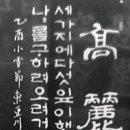 高麗
세가지에다섯잎이해
나를구하려오려거
乙酉小雪節東豆川